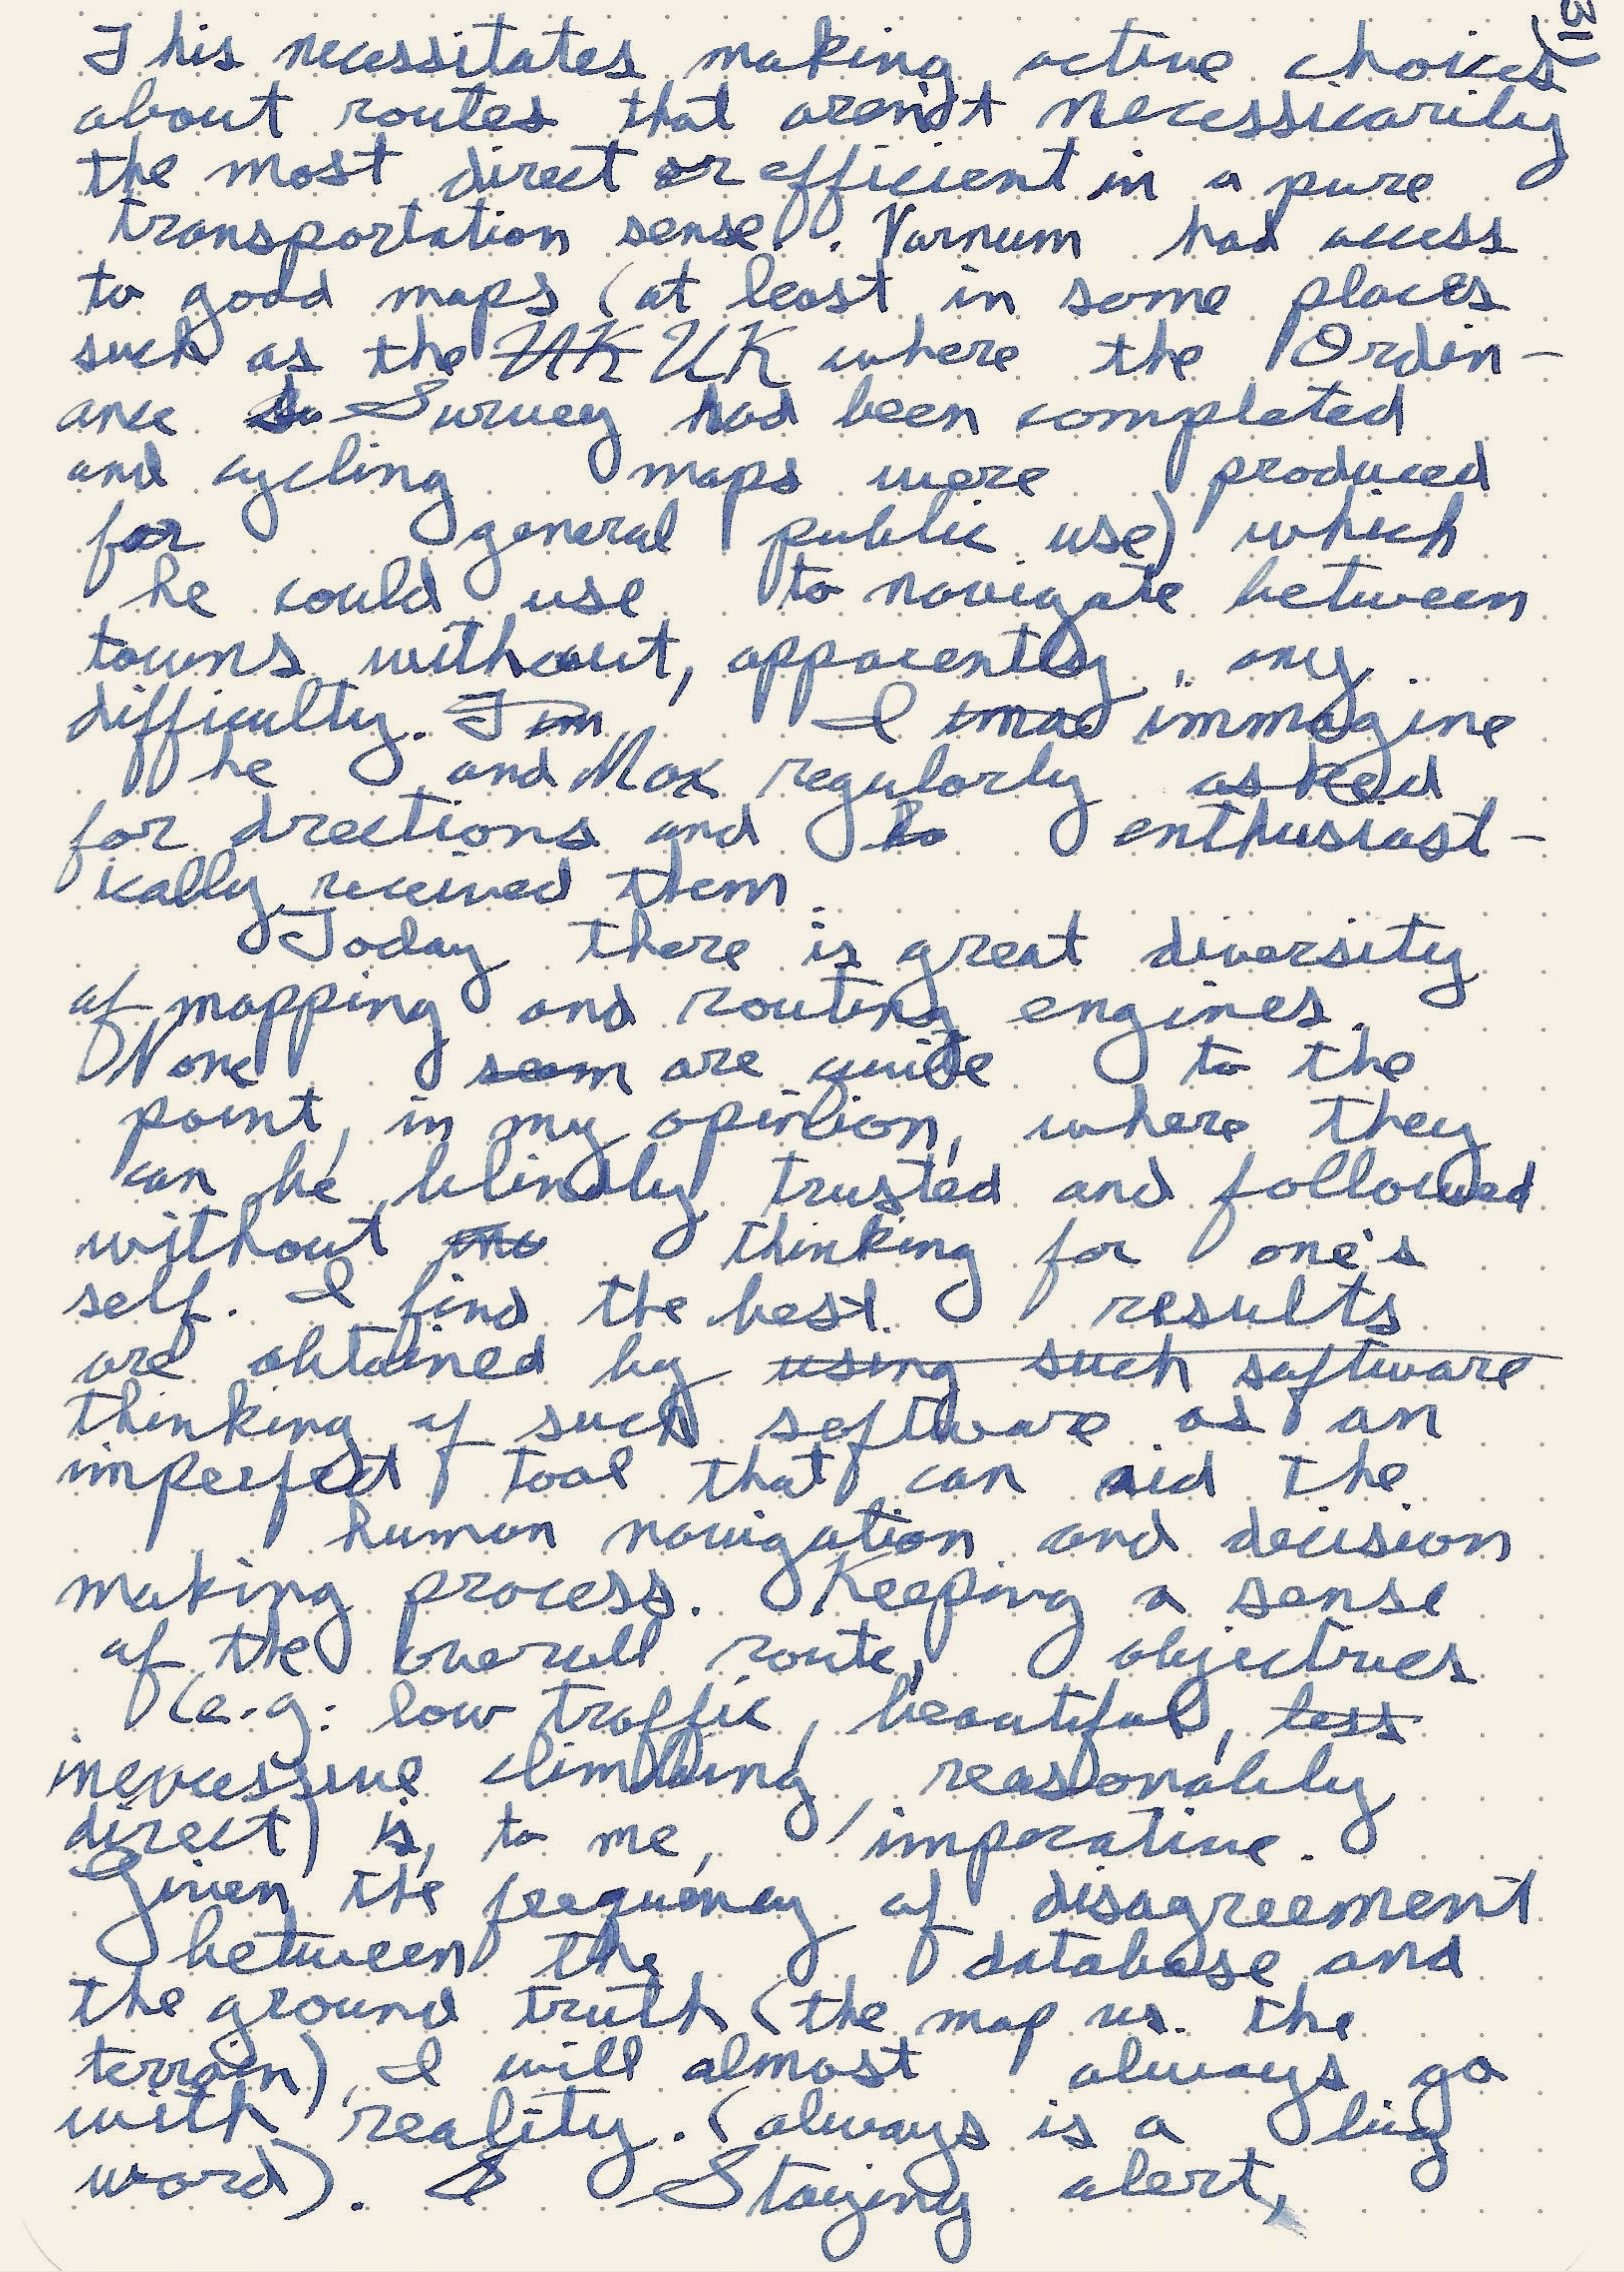 31
This necessitates making active choices
about routes that aren't necessicarily
the most direct or efficient in a pure
transportation sense. Varnum had access
to good maps (at least in some places
such as the UK UK where the Ordin-
ance S Survey had been completed
and cycling maps were produced
for general public use) which
he could use to navigate between
towns without, apparently, any
difficulty. I im I imag immagine
he and Max regularly asked
for drections and to enthusiast-
ically received them.
Today there is great diversity
of mapping and routing engines.
None seem are quite to the
point, in my opinion, where they
can be blindly trusted and followed
without thinking for one's
self. I find the best results
are obtained by using such software
thinking of such software as an
imperfect tool that can aid the
human navigation and decision
making process. Keeping a sense
of the overall route, objectives
(e.g: low traffic, beautiful, less
inexcessive climbing, reasonably
direct) is, to me, imperative.
Given the frequency of disagreement
between the database and
the ground truth (the map vs. the
terrain), I will almost always go
with reality. (always is a big
word). S Staying alert,